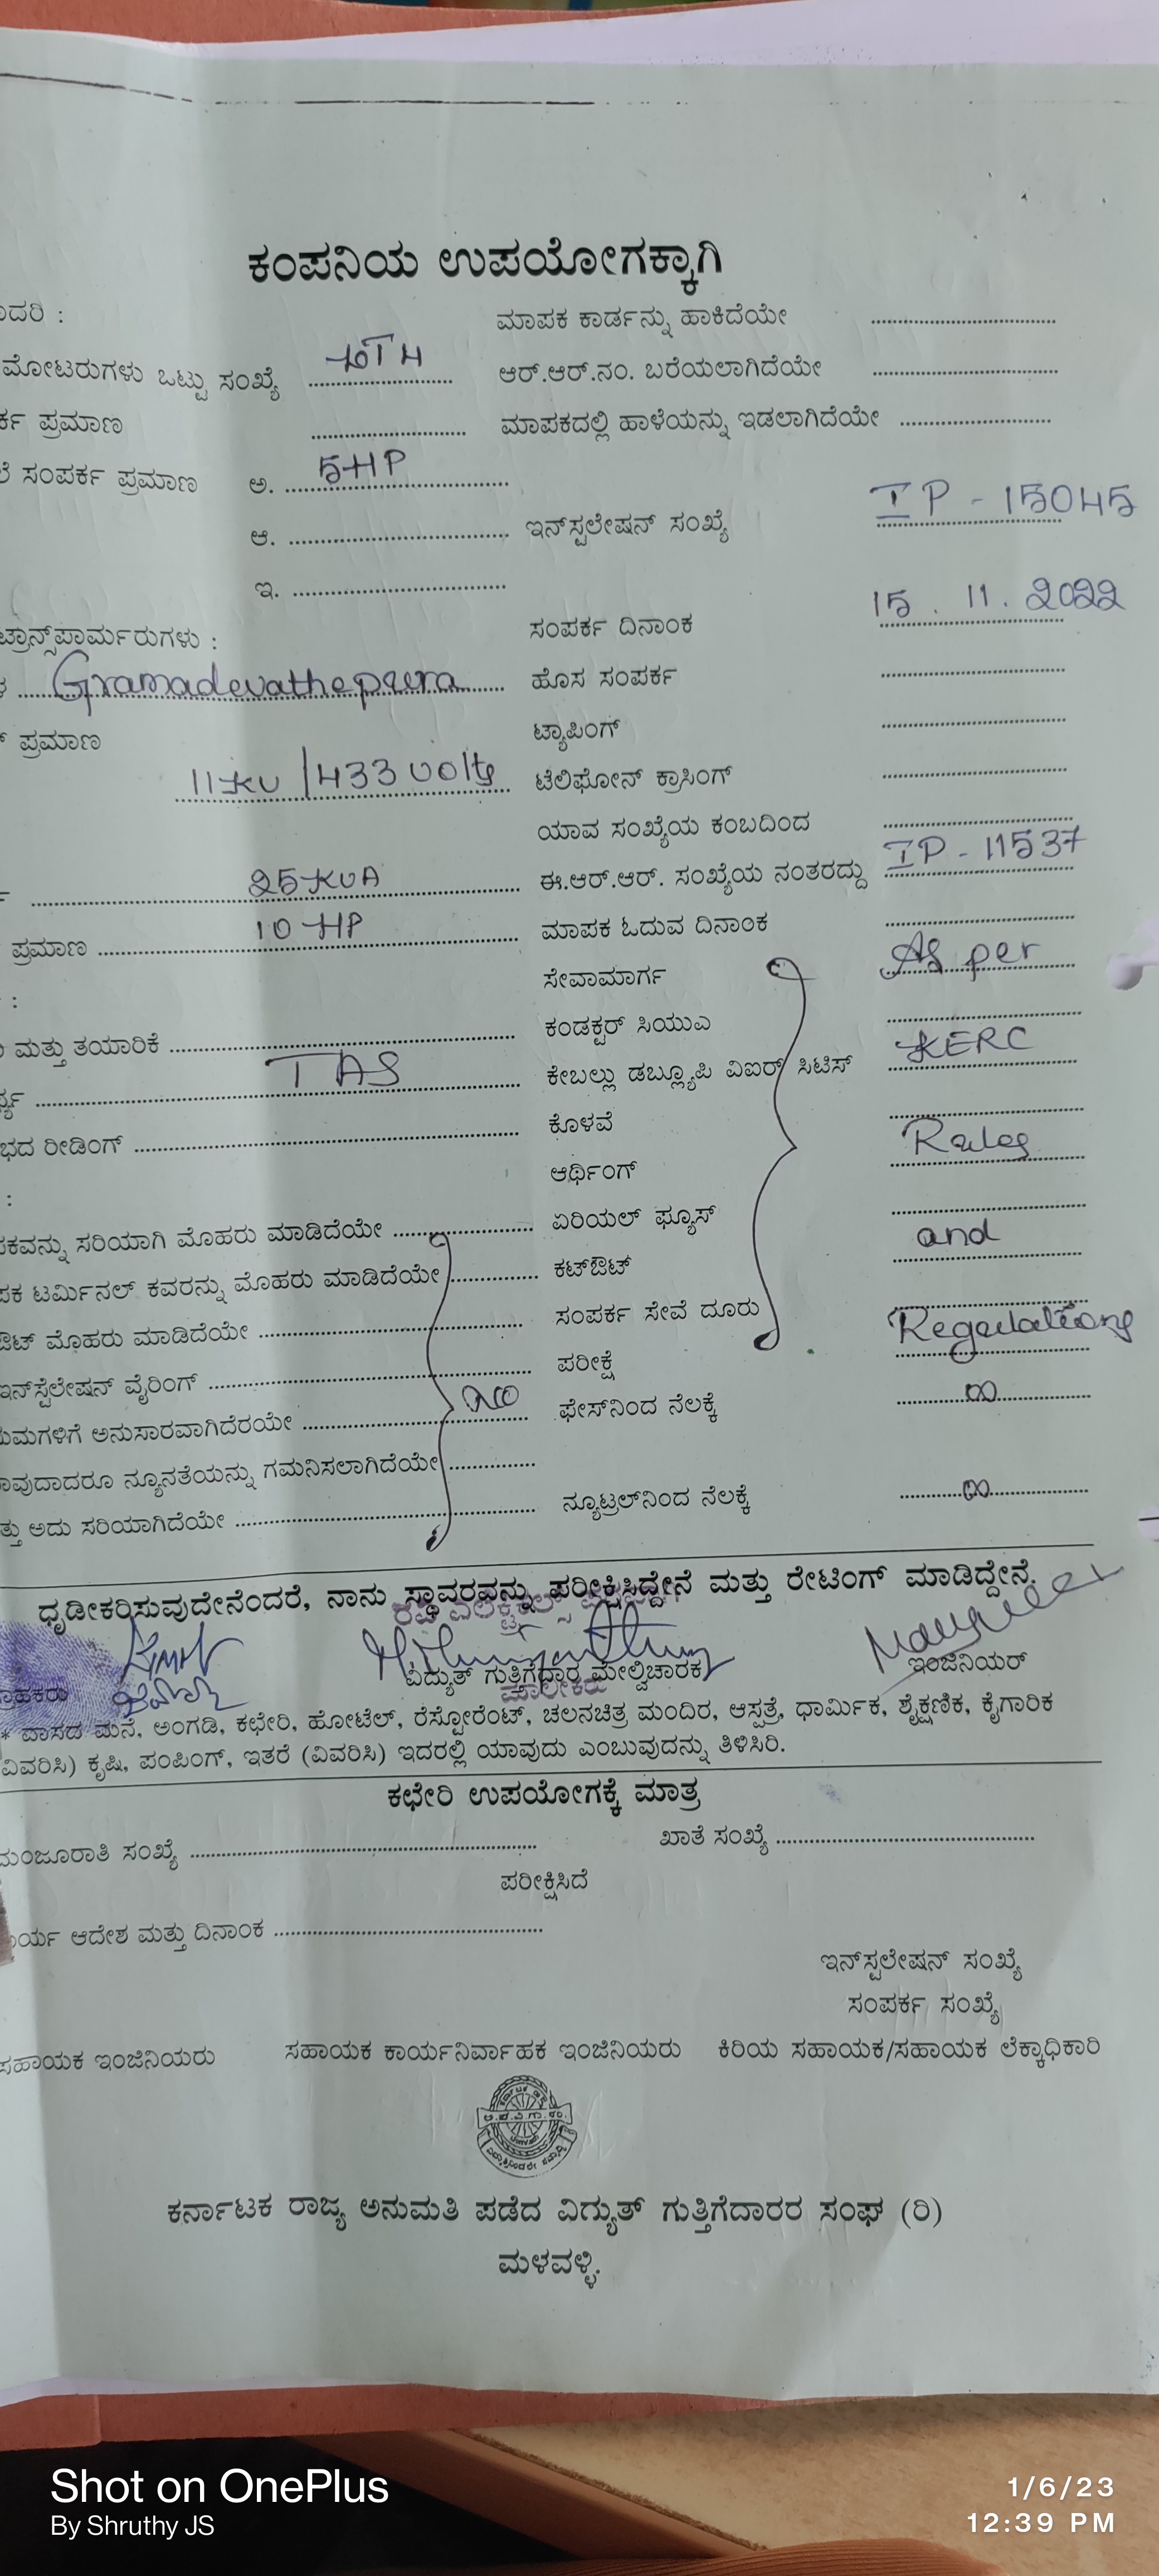 ಕಂಪನಿಯ ಉಪಯೋಗಕ್ಕಾಗಿ
ಮಾಪಕ ಕಾರ್ಡನ್ನು ಹಾಕಿದೆಯೇ
ಮೋಟರುಗಳು ಒಟ್ಟು ಸಂಖ್ಯೆ ಆರ್.ಆರ್.ನಂ. ಬರೆಯಲಾಗಿದೆಯೇ
ಪ್ರಮಾಣ ಮಾಪಕದಲ್ಲಿ ಹಾಳೆಯನ್ನು ಇಡಲಾಗಿದೆಯೇ
ಸಂಪರ್ಕ ಪ್ರಮಾಣ ಅ. 5HP
ಆ. ಇನ್‌ಸ್ಟಲೇಷನ್ ಸಂಖ್ಯೆ IP - 15045
ಇ.
ಸಂಪರ್ಕ ದಿನಾಂಕ 15 . 11 . 2022
ಟ್ರಾನ್ಸ್‌ಫಾರ್ಮರುಗಳು :
Gramadevathepura ಹೊಸ ಸಂಪರ್ಕ
ಪ್ರಮಾಣ ಟ್ಯಾಪಿಂಗ್
11KV /433 volts ಟೆಲಿಫೋನ್ ಕ್ರಾಸಿಂಗ್
ಯಾವ ಸಂಖ್ಯೆಯ ಕಂಬದಿಂದ
25 KVA ಈ.ಆರ್.ಆರ್. ಸಂಖ್ಯೆಯ ನಂತರದ್ದು IP - 11537
ಪ್ರಮಾಣ 10 HP ಮಾಪಕ ಓದುವ ದಿನಾಂಕ
: ಸೇವಾಮಾರ್ಗ As per
ಮತ್ತು ತಯಾರಿಕೆ ಕಂಡಕ್ಟರ್ ಸಿಯುಎ
TAS ಕೇಬಲ್ಲು ಡಬ್ಲ್ಯೂಪಿ ವಿಐರ್ ಸಿಟಿಸ್ KERC
ರೀಡಿಂಗ್ ಕೊಳವೆ
ಆರ್ಥಿಂಗ್ Rules
ಸರಿಯಾಗಿ ಮೊಹರು ಮಾಡಿದೆಯೇ ಏರಿಯಲ್ ಫ್ಯೂಸ್
ಟರ್ಮಿನಲ್ ಕವರನ್ನು ಮೊಹರು ಮಾಡಿದೆಯೇ ಕಟ್‌ಔಟ್ and
ಮೊಹರು ಮಾಡಿದೆಯೇ ಸಂಪರ್ಕ ಸೇವೆ ದೂರು
ಇನ್‌ಸ್ಟೆಲೇಷನ್ ವೈರಿಂಗ್ ಪರೀಕ್ಷೆ Regulations
ಅನುಸಾರವಾಗಿದೆರಯೇ ಫೇಸ್‌ನಿಂದ ನೆಲಕ್ಕೆ ∞
ನ್ಯೂನತೆಯನ್ನು ಗಮನಿಸಲಾಗಿದೆಯೇ
ಅದು ಸರಿಯಾಗಿದೆಯೇ ನ್ಯೂಟ್ರಲ್‌ನಿಂದ ನೆಲಕ್ಕೆ ∞
ಧೃಡೀಕರಿಸುವುದೇನೆಂದರೆ, ನಾನು ಸ್ಥಾವರವನ್ನು ಪರೀಕ್ಷಿಸಿದ್ದೇನೆ ಮತ್ತು ರೇಟಿಂಗ್ ಮಾಡಿದ್ದೇನೆ.
ವಿದ್ಯುತ್ ಗುತ್ತಿಗೆದಾರ ಮೇಲ್ವಿಚಾರಕ ಇಂಜಿನಿಯರ್
ಮಾಲೀಕರು
* ವಾಸದ ಮನೆ, ಅಂಗಡಿ, ಕಛೇರಿ, ಹೋಟೆಲ್, ರೆಸ್ಟೋರೆಂಟ್, ಚಲನಚಿತ್ರ ಮಂದಿರ, ಆಸ್ಪತ್ರೆ, ಧಾರ್ಮಿಕ, ಶೈಕ್ಷಣಿಕ, ಕೈಗಾರಿಕ
ವಿವರಿಸಿ) ಕೃಷಿ, ಪಂಪಿಂಗ್, ಇತರೆ (ವಿವರಿಸಿ) ಇದರಲ್ಲಿ ಯಾವುದು ಎಂಬುವುದನ್ನು ತಿಳಿಸಿರಿ.
ಕಛೇರಿ ಉಪಯೋಗಕ್ಕೆ ಮಾತ್ರ
ಮಂಜೂರಾತಿ ಸಂಖ್ಯೆ ಖಾತೆ ಸಂಖ್ಯೆ
ಪರೀಕ್ಷಿಸಿದೆ
ಆದೇಶ ಮತ್ತು ದಿನಾಂಕ
ಇನ್‌ಸ್ಟಲೇಷನ್ ಸಂಖ್ಯೆ
ಸಂಪರ್ಕ ಸಂಖ್ಯೆ
ಸಹಾಯಕ ಇಂಜಿನಿಯರು ಸಹಾಯಕ ಕಾರ್ಯನಿರ್ವಾಹಕ ಇಂಜಿನಿಯರು ಕಿರಿಯ ಸಹಾಯಕ/ಸಹಾಯಕ ಲೆಕ್ಕಾಧಿಕಾರಿ
ಕರ್ನಾಟಕ ರಾಜ್ಯ ಅನುಮತಿ ಪಡೆದ ವಿದ್ಯುತ್ ಗುತ್ತಿಗೆದಾರರ ಸಂಘ (ರಿ)
ಮಳವಳ್ಳಿ.
Shot on OnePlus 1/6/23
By Shruthy JS 12:39 PM